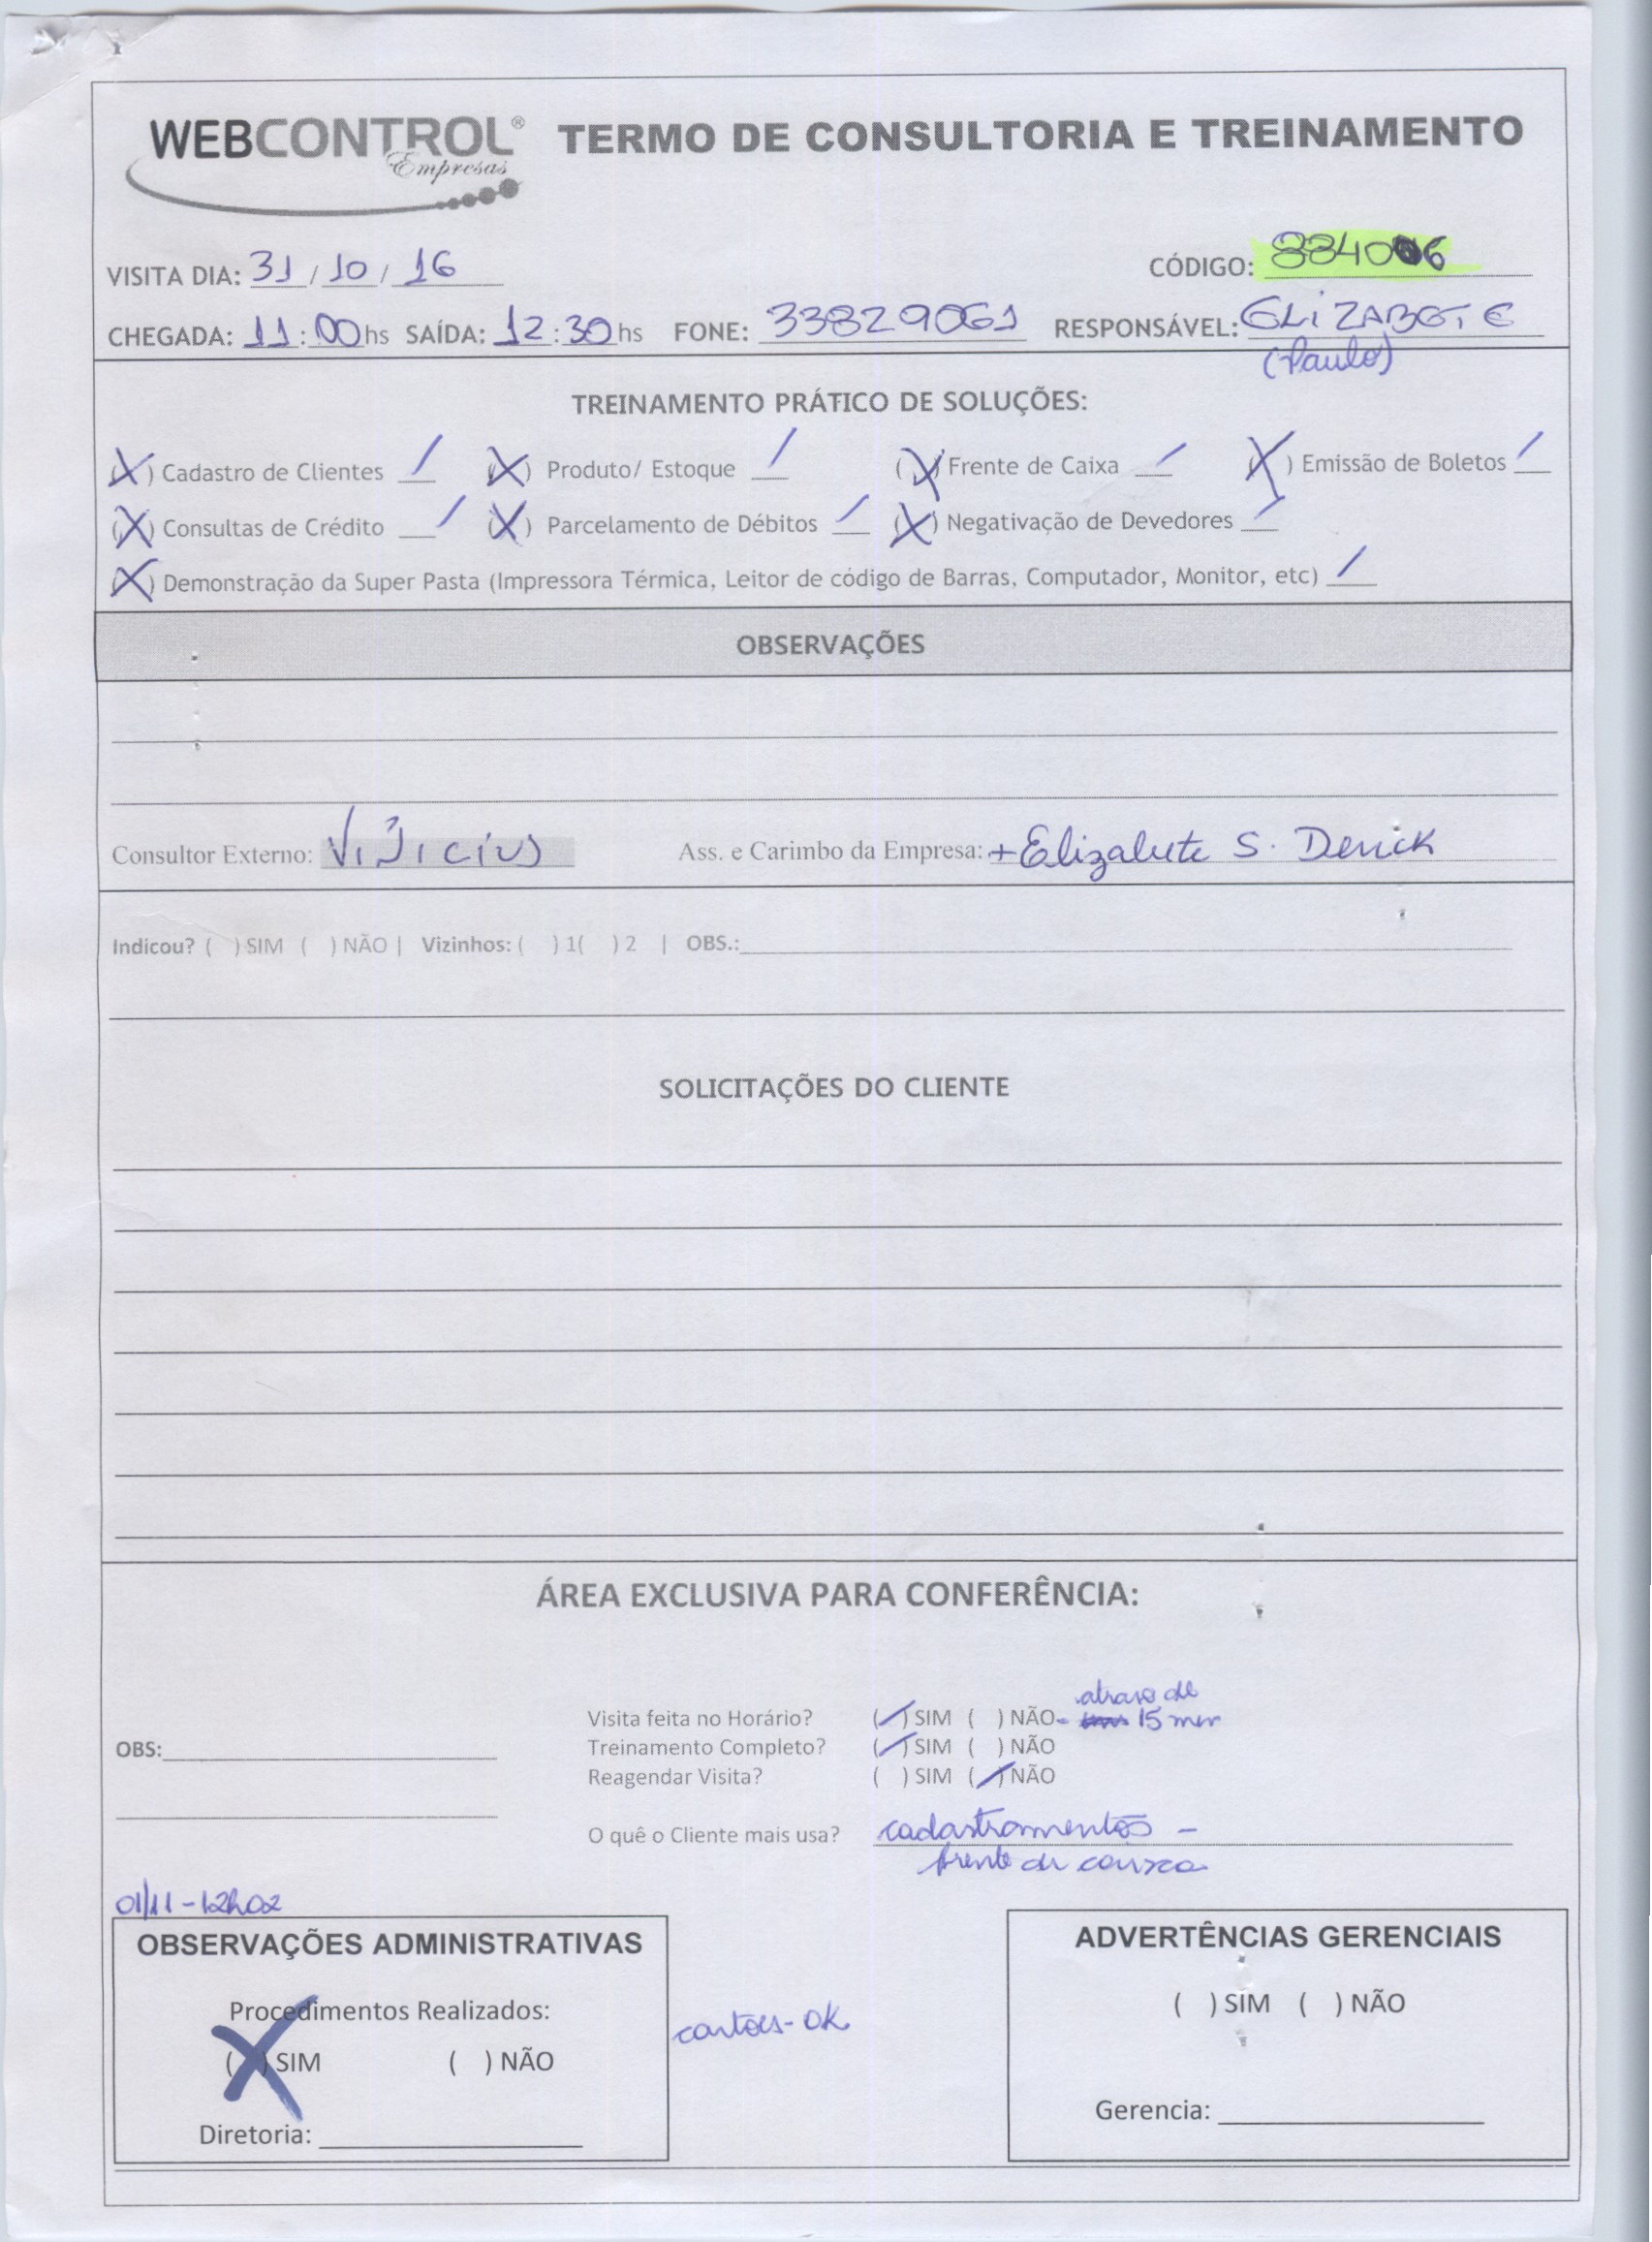 WEBCONTROL® Empresas TERMO DE CONSULTORIA E TREINAMENTO
VISITA DIA: 31 / 10 / 16 CÓDIGO:
CHEGADA: 11:00hs SAÍDA: 12:30hs FONE: 33829061 RESPONSÁVEL: ELIZABETE
(Paulo)
TREINAMENTO PRÁTICO DE SOLUÇÕES:
(X) Cadastro de Clientes / (X) Produto/ Estoque / (X) Frente de Caixa / (X) Emissão de Boletos /
(X) Consultas de Crédito / (X) Parcelamento de Débitos / (X) Negativação de Devedores /
(X) Demonstração da Super Pasta (Impressora Térmica, Leitor de código de Barras, Computador, Monitor, etc) /
OBSERVAÇÕES
Consultor Externo: Vinicius Ass. e Carimbo da Empresa: +Elizabete S. Derick
Indicou? ( ) SIM ( ) NÃO | Vizinhos: ( ) 1( ) 2 | OBS.:
SOLICITAÇÕES DO CLIENTE
ÁREA EXCLUSIVA PARA CONFERÊNCIA:
atraso de
Visita feita no Horário? (/) SIM ( ) NÃO - 15 min
Treinamento Completo? (/) SIM ( ) NÃO
OBS:
Reagendar Visita? ( ) SIM (/) NÃO
O quê o Cliente mais usa? cadastramentos -
frente de caixa
01/11 - 12h02
OBSERVAÇÕES ADMINISTRATIVAS
Procedimentos Realizados:
(X) SIM ( ) NÃO
Diretoria:
cartões - OK
ADVERTÊNCIAS GERENCIAIS
( ) SIM ( ) NÃO
Gerencia: